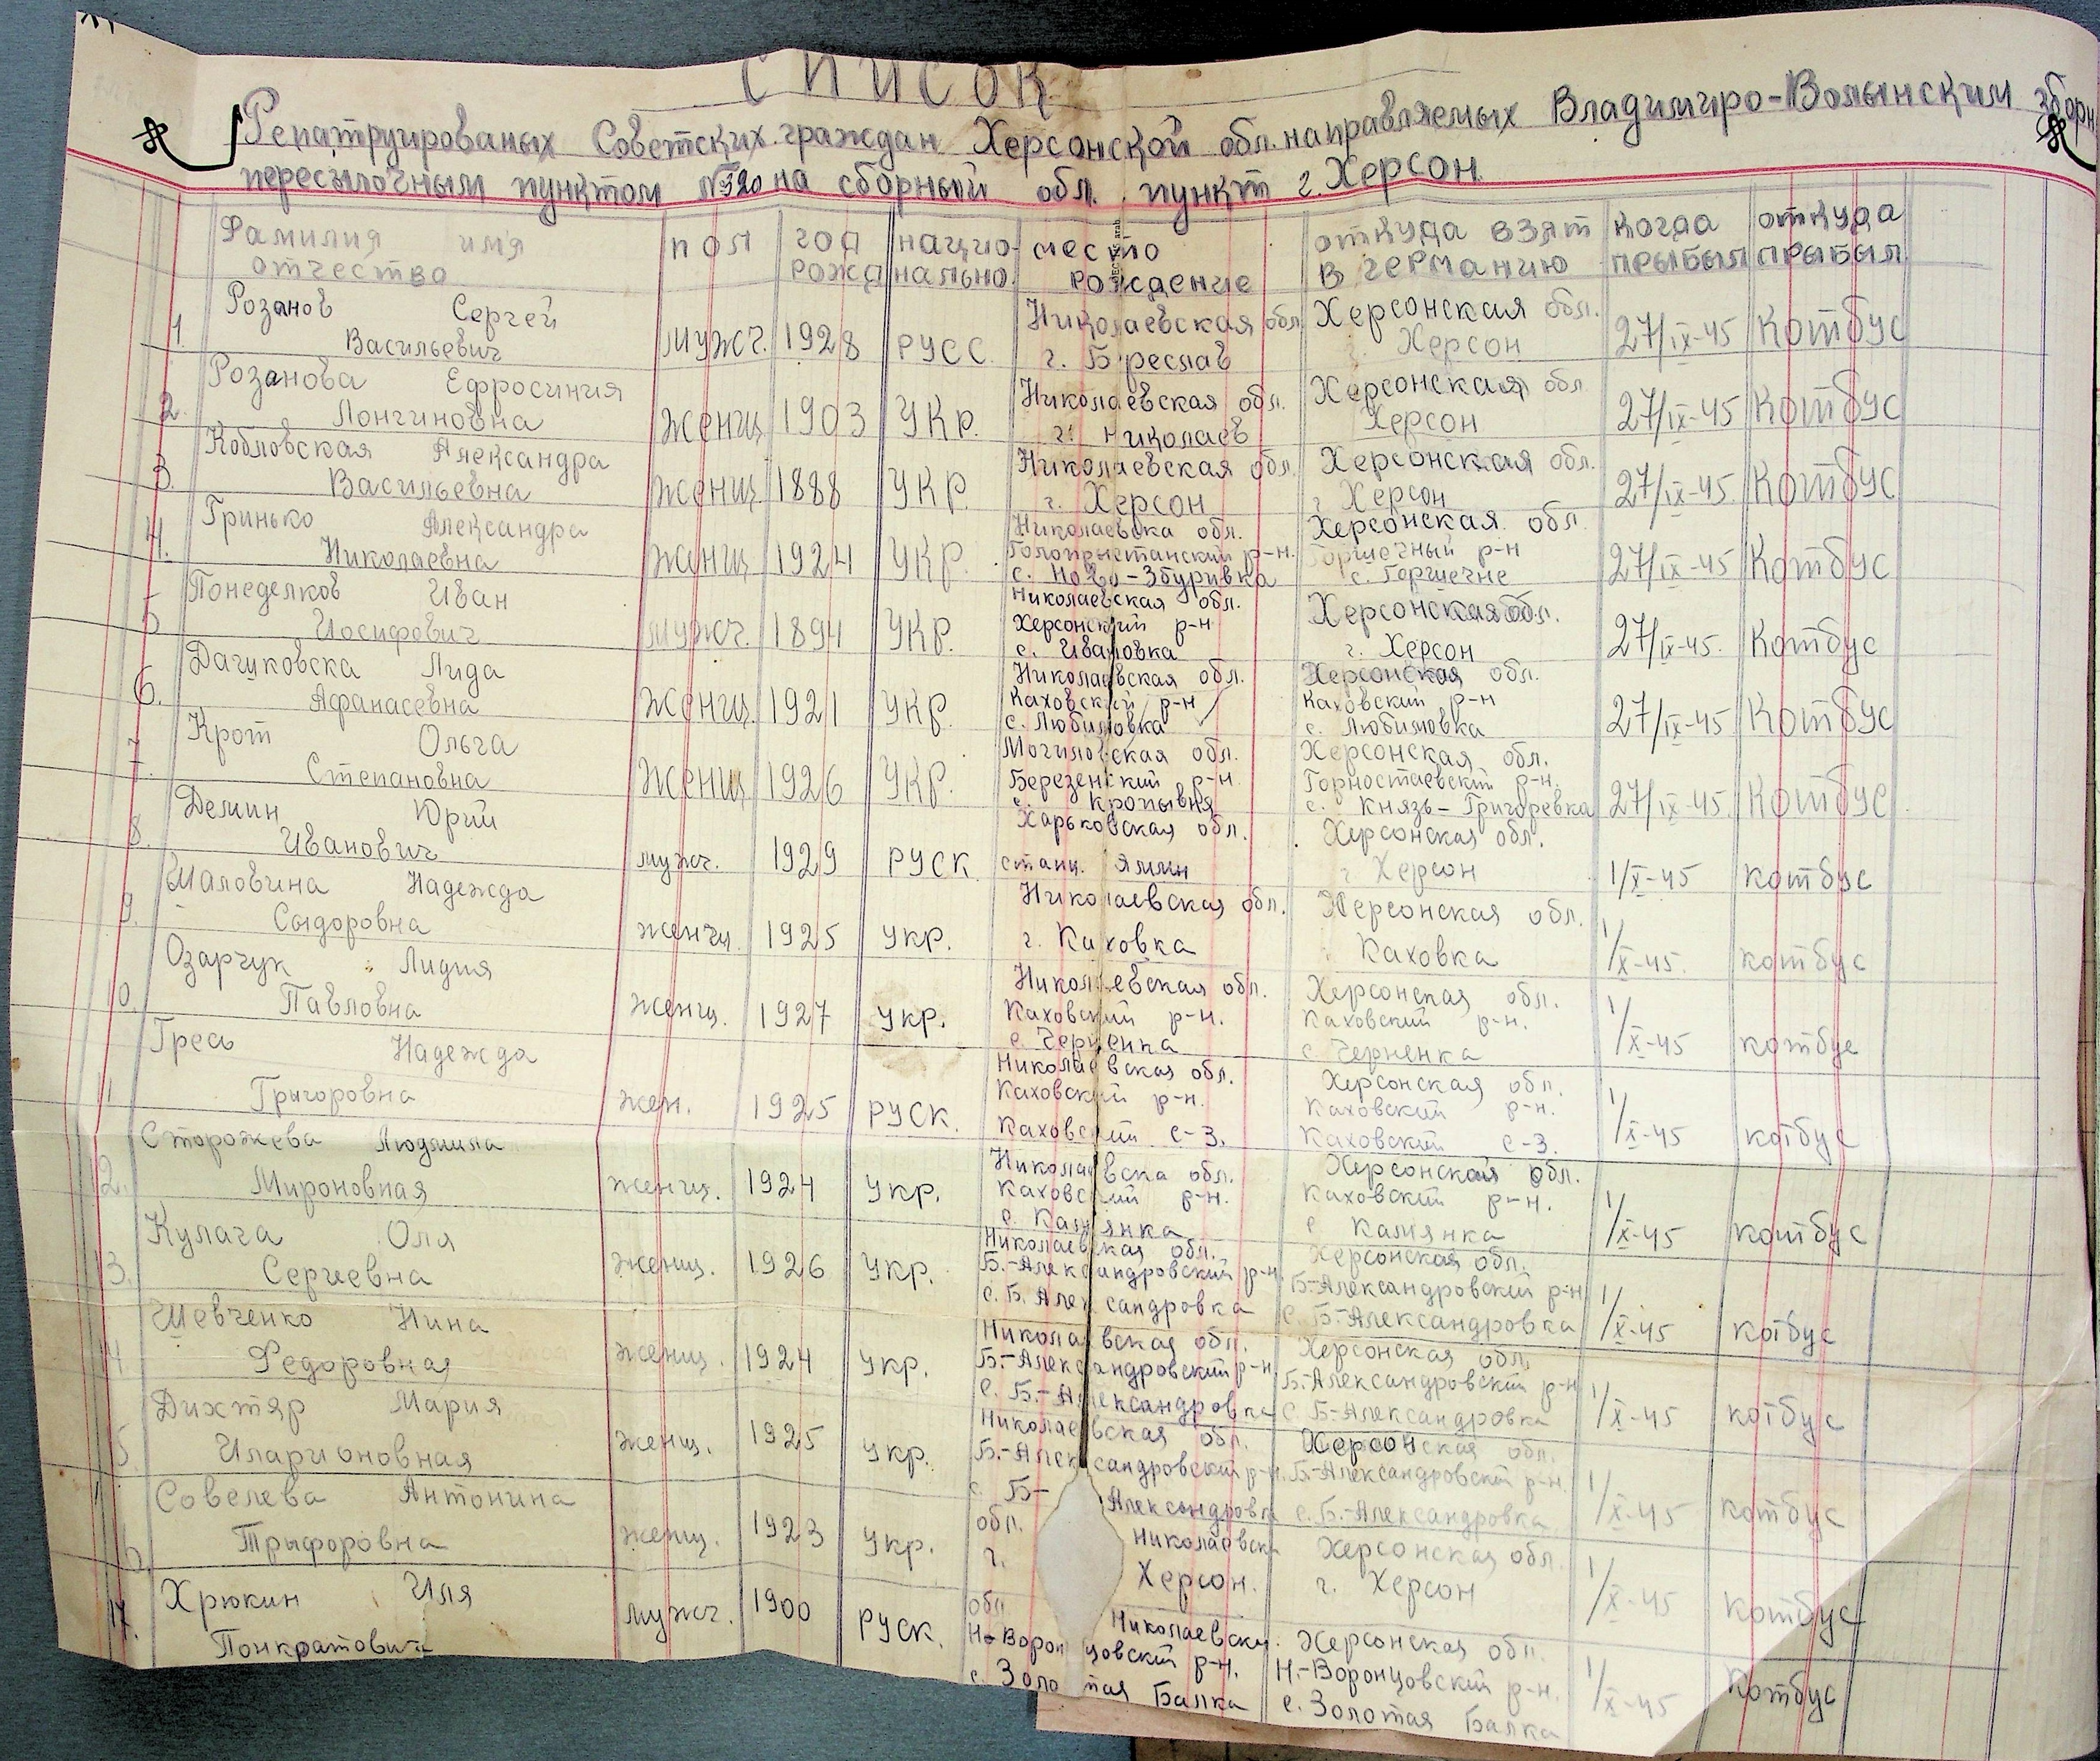 СПИСОК
Репатруированых Советских граждан Херсонской обл. направляемых Владимиро-Волынским зборн
пересылочным пунктом №520 на сборный обл. пункт г. Херсон.
Фамилия имя отчество пол год рожд нацио-нально. место рождение откуда взят в германию когда прыбыл откуда прыбыл
1. Розанов Сергей Васильевич мужч. 1928 русс. Николаевская обл. г. Береслав Херсонская обл. г. Херсон 27/IX-45 Котбус
2. Розанова Ефросиния Лонгиновна женщ. 1903 укр. Николаевская обл. г. Николаев Херсонская обл. Херсон 27/IX-45 Котбус
3. Кобловская Александра Васильевна женщ. 1888 укр. Николаевская обл. г. Херсон Херсонская обл. г Херсон 27/IX-45. Котбус
4. Гринько Александра Николаевна женщ 1924 укр. Николаевска обл. Голопрыстанский р-н. с. Ново-Збуривка Херсонская обл. р-н с. 27/IX-45 Котбус
5 Понеделков Иван Иосифович мужч. 1894 укр. Николаевская обл. Херсонский р-н с. Ивановка Херсонская обл. г. Херсон 27/IX-45. Котбус
6. Дацуковска Лида Афанасевна женщ. 1921 укр. Николаевская обл. Каховский р-н с. Любимовка Херсонская обл. Каховский р-н с. Любимовка 27/IX-45 Котбус
7. Крот Ольга Степановна женщ 1926 укр. Могиловская обл. Березенский р-н с. Кропывня Херсонская обл. Горностаевский р-н. с. Князь-Григоревка 27/IX-45. Котбус
8. Демин Юрий Иванович мужч. 1929 руск Харьковская обл. станц. Ямин Херсонская обл. г Херсон 1/X-45 котбус
9. Маловина Надежда Сыдоровна женщ. 1925 укр. Николаевская обл. г. Каховка Херсонская обл. Каховка 1/X-45. котбус
10. Озарчук Лидия Павловна женщ. 1927 укр. Николаевская обл. Каховский р-н. с. Черненка Херсонская обл. Каховский р-н. с Черненка 1/X-45 котбус
11 Гресь Надежда Григоровна жен. 1925 руск. Николаевская обл. Каховский р-н. Каховский с-з. Херсонская обл. Каховский р-н. Каховский с-з. 1/X-45 котбус
2. Сторожева Людмила Мироновная женщ. 1924 укр. Николаевска обл. Каховский р-н. с. Камянка Херсонская обл. Каховский р-н. с Камянка 1/X-45 котбус
13. Кулага Оля Сергеевна женщ. 1926 укр. Николаевская обл. Б.-Александровский р-н с. Б. Александровка Херсонская обл. Б-Александровский р-н с Б-Александровка 1/X-45 котбус
4. Шевченко Нина Федоровная женщ. 1924 укр. Николаевская обл. Б.-Александровский р-н с. Б.-Александровка Херсонская обл. Б-Александровский р-н с Б-Александровка 1/X-45 котбус
5. Дихтяр Мария Иларионовная женщ. 1925 укр. Николаевская обл. Б.-Александровский р-н. с. Б-Александровка Херсонская обл. Б-Александровский р-н. с. Б.-Александровка 1/X-45 котбус
16. Совелева Антонина Трыфоровна женщ. 1923 укр. обл. Николаевска г. Херсон. Херсонская обл. г. Херсон 1/X-45 котбус
17. Хрюкин Иля Понкратович мужч. 1900 руск. обл Николаевска. Н-Воронцовский р-н. с. Золотая Балка Херсонская обл. Н.-Воронцовский р-н. с. Золотая Балка 1/X-45 котбус